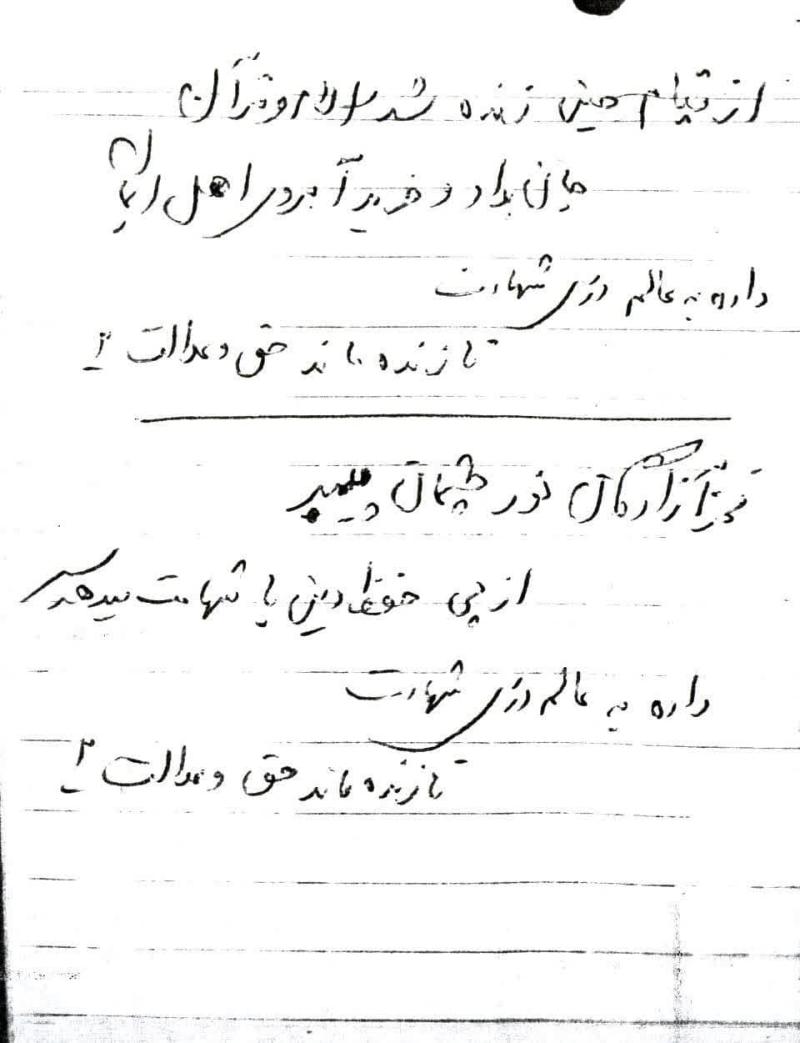 از قیام حسین زنده شد اسلام و قرآن
جان بداد و خرید آبروی اهل ایمان
داده به عالم درس شهادت
تا زنده ماند حق و عدالت ۲
فخر آزادگان نور چشمان پیمبر
از پی حفظ دین با شهامت میدهد سر
داده به عالم درس شهادت
تا زنده ماند حق و عدالت ۲